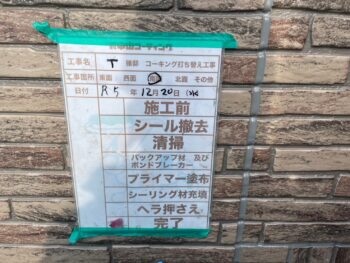 工事名 T 様邸 コーキング打ち替え工事
工事箇所 東面 西面 南 北面 その他
日付 R5年12月20日(水)
施工前
シール撤去
清掃
バックアップ材 及び
ボンドブレーカー
プライマー塗布
シーリング材充填
ヘラ押さえ
完了